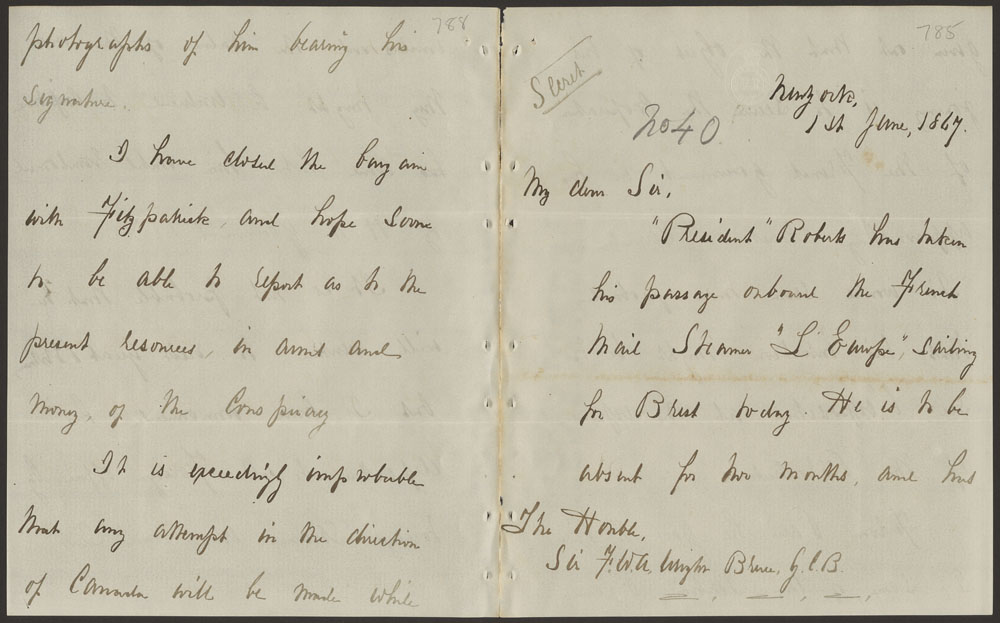 788
photographs of him bearing his
signature.
I have closed the bargain
with Fitzpatrick and hope soon
to be able to report as to the
present resources, in arms and
money, of the Conspiracy
It is exceedingly improbable
that any attempt in the direction
of Canada will be made while
785
Secret
No 40.
New York,
1st June, 1867.
My dear Sir,
"President" Roberts has taken
his passage onboard the French
Mail Steamer "L'Europe", sailing
for Brest today. He is to be
absent for two months, and has
The Honble,
Sir F.W.A. Bruce, G.C.B.